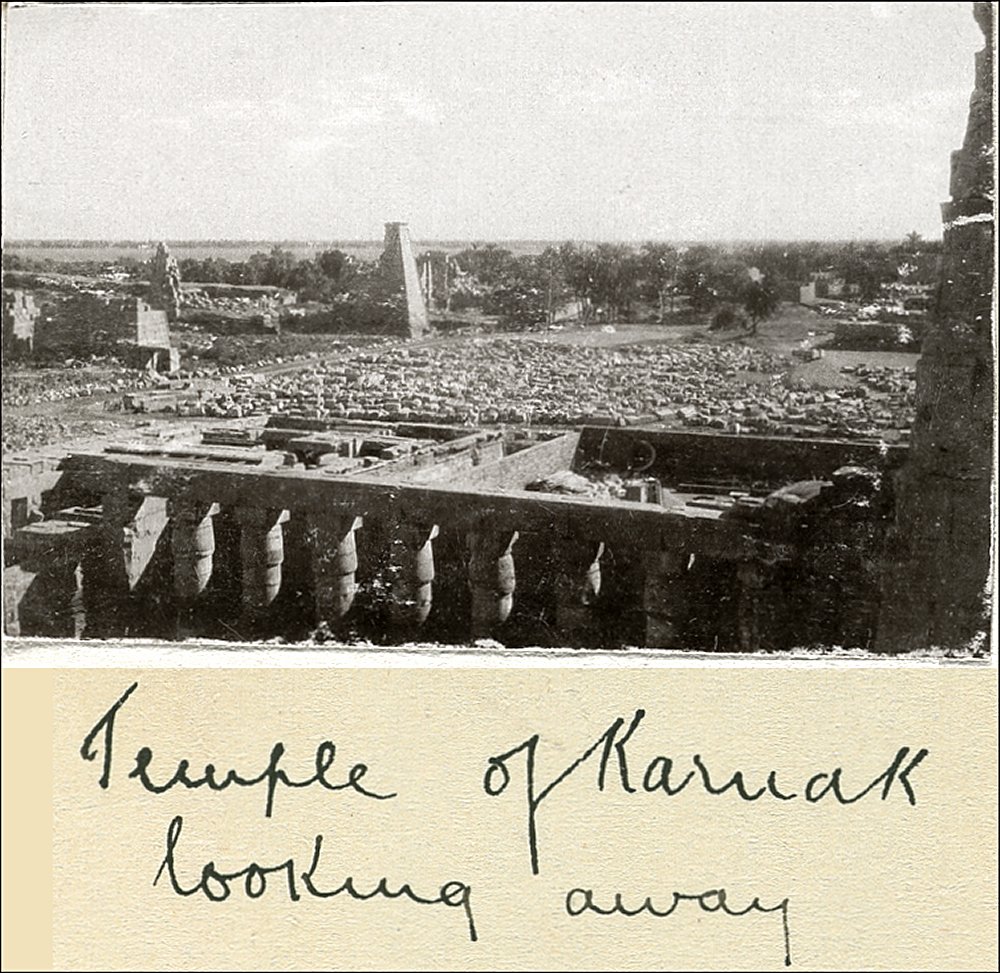 Temple of Karnak
looking away